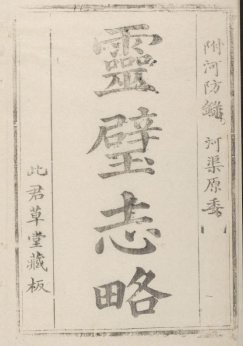 附河防錄 河渠原委
靈璧志略
此君草堂藏板